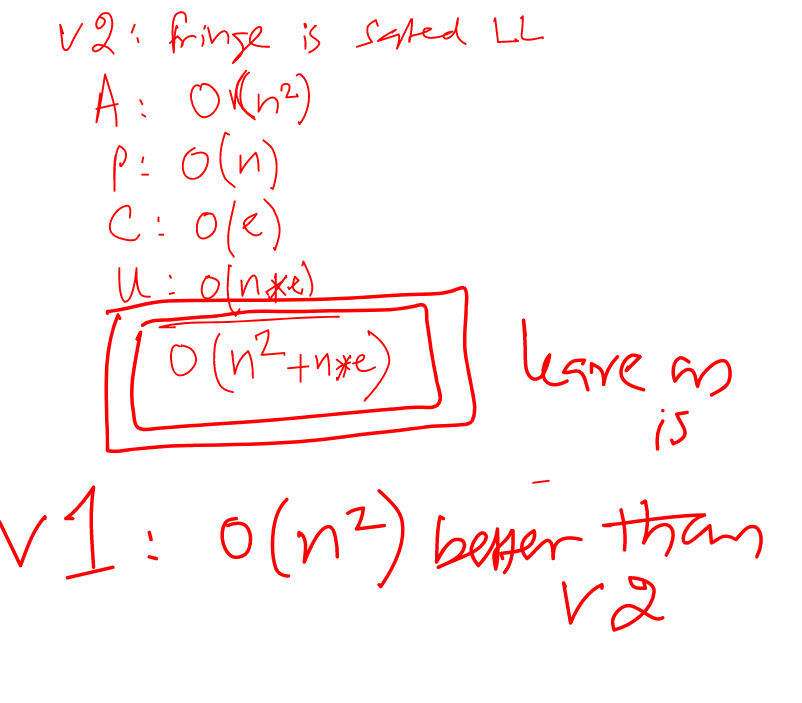 v2: fringe is sorted LL
A: O(n²)
P: O(n)
C: O(e)
U: O(n*e)
O(n²+n*e)
leave as
is
v1: O(n²) better than
v2